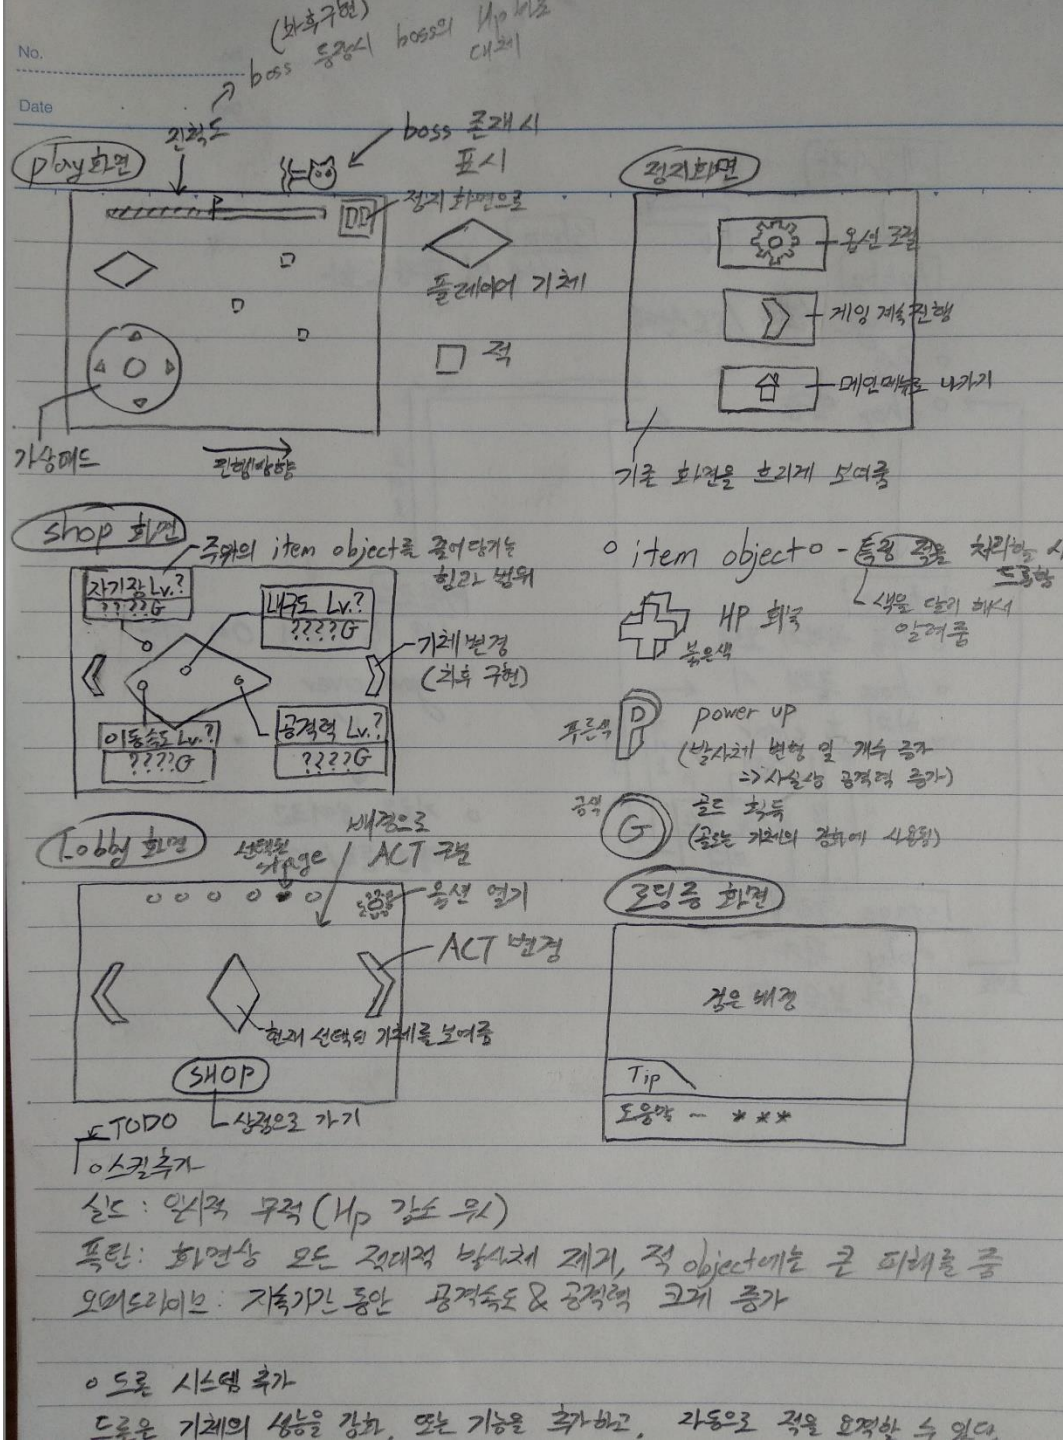 No.
Date
(차후구현)
boss 등장시 boss의 Hp바로
대체
진척도
boss 존재시
표시
play화면
정지화면으로
플레이어 기체
적
가상패드
진행방향
정지화면
옵션 조절
게임 계속진행
메인메뉴로 나가기
기존 화면을 흐리게 보여줌
shop 화면
주변의 item object를 끌어당기는
힘과 범위
자기장 Lv.?
????G
내구도 Lv.?
????G
기체변경
(차후 구현)
이동속도 Lv.?
????G
공격력 Lv.?
????G
o item object - 특정 적을 처리할 시
드롭함
색을 달리 해서
알려줌
HP 회복
붉은색
푸른색
P
power up
(발사체 변형 및 개수 증가
=> 사실상 공격력 증가)
금색
G
골드 획득
(골드는 기체의 강화에 사용됨)
Lobby 화면
선택된
stage
배경으로
ACT 구분
옵션 열기
ACT 변경
현재 선택된 기체를 보여줌
SHOP
상점으로 가기
로딩중 화면
검은 배경
Tip
도움말 - * * *
TODO
o 스킬추가
실드 : 일시적 무적 (Hp 감소 무시)
폭탄: 화면상 모든 적대적 발사체 제거, 적 object에는 큰 피해를 줌
오버드라이브 : 지속기간 동안 공격속도 & 공격력 크게 증가
o 드론 시스템 추가
드론은 기체의 성능을 강화, 또는 기능을 추가하고, 자동으로 적을 요격할 수 있다.